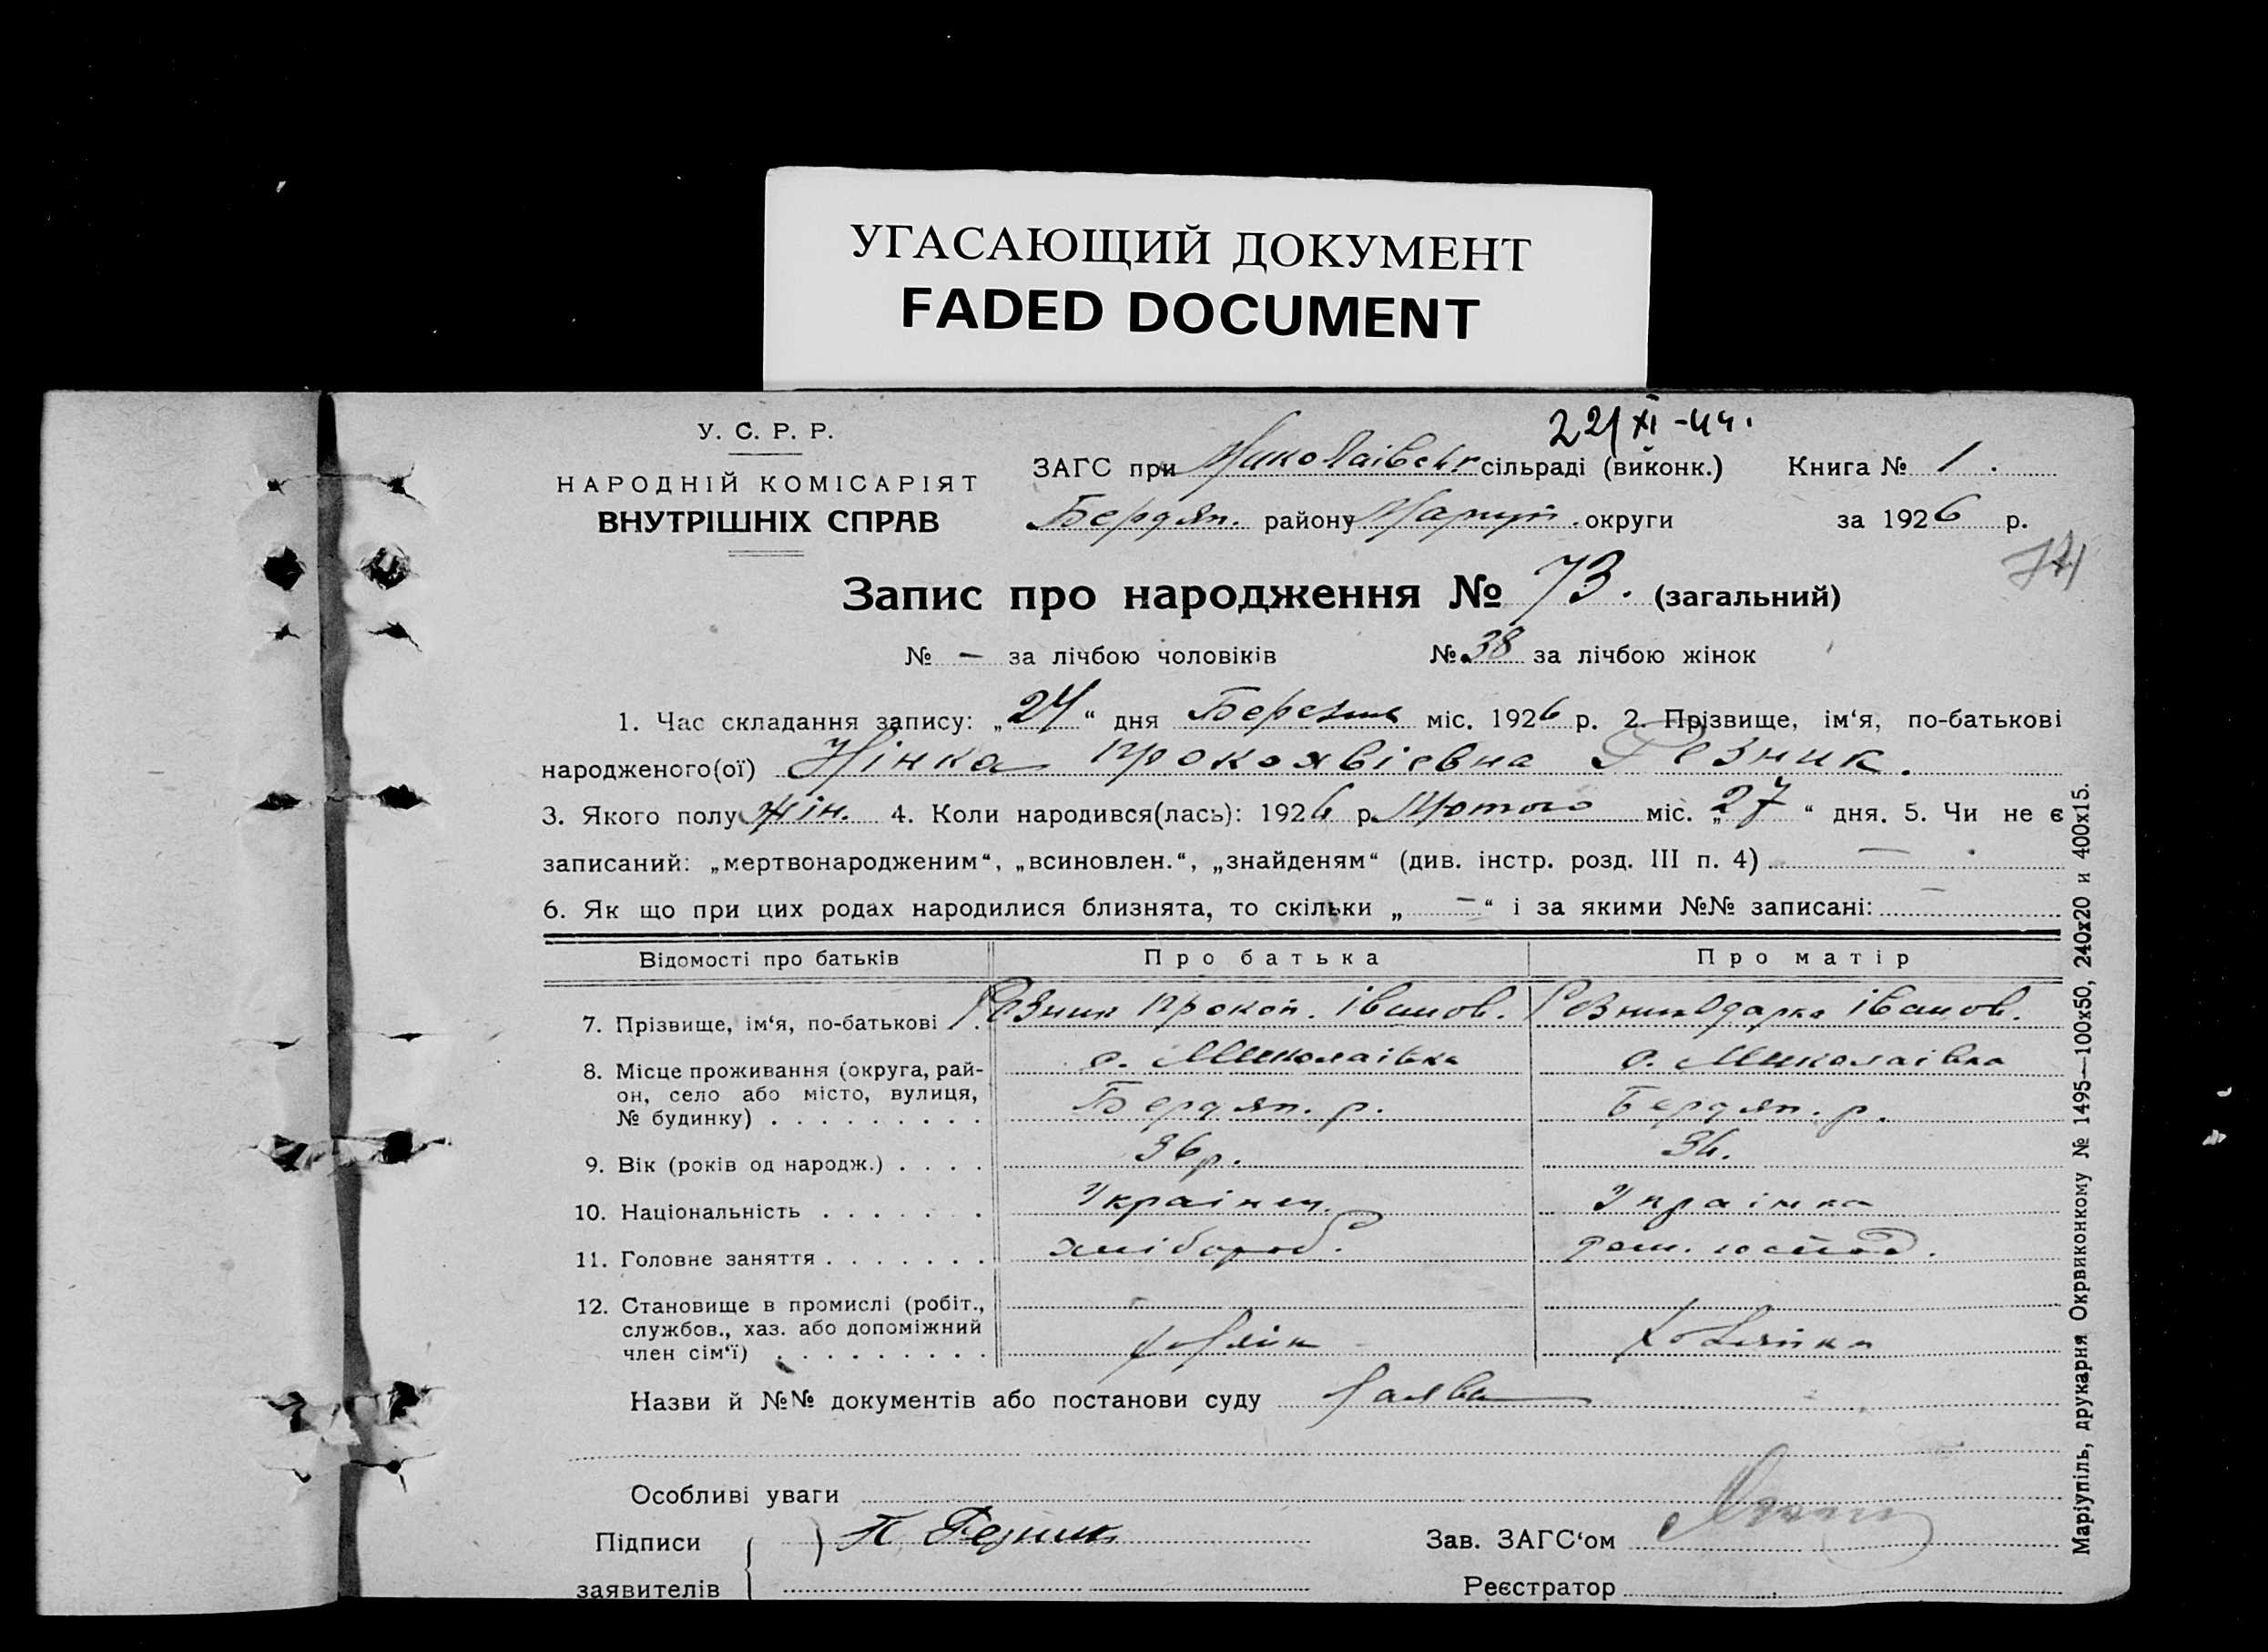 УГАСАЮЩИЙ ДОКУМЕНТ
FADED DOCUMENT
22/XI-44.
У. С. Р. Р.
НАРОДНІЙ КОМІСАРІЯТ
ВНУТРІШНІХ СПРАВ
ЗАГС при Миколаівськ сільраді (виконк.) Книга № 1.
Бердян. району Маріуп. округи за 1926 р.
Запис про народження № 73. (загальний)
№ — за лічбою чоловіків № 38 за лічбою жінок
1. Час складання запису: „24“ дня Березня міс. 1926 р. 2. Прізвище, ім‘я, по-батькові
народженого(ої) Нінка Прокоявіевна Резник.
3. Якого полу жін. 4. Коли народився(лась): 1926 р. Лютого міс. „27“ дня. 5. Чи не є
записаний: „мертвонародженим“, „всиновлен.“, „знайденям“ (див. інстр. розд. III п. 4) —
6. Як що при цих родах народилися близнята, то скільки „—“ і за якими №№ записані: —
Відомості про батьків Про батька Про матір
7. Прізвище, ім‘я, по-батькові Резник Прокоп. Іванов. Резник Одарка Іванов.
8. Місце проживання (округа, рай-
он, село або місто, вулиця,
№ будинку) . . . . . . . . .
с. Миколаівка с. Миколаівка
Бердян. р. Бердян. р.
9. Вік (років од народж.) . . . . 36 р. 36.
10. Національність . . . . . . . Украінец. Украінка
11. Головне заняття . . . . . . . хлібороб. дом. господ.
12. Становище в промислі (робіт.,
службов., хаз. або допоміжний
член сім‘ї) . . . . . . . . .
хозяїн хозяйка
Назви й №№ документів або постанови суду Заява
Особливі уваги
Підписи
заявителів
П. Резник
Зав. ЗАГС‘ом
Реєстратор
Маріупіль, друкарня Окрвиконкому № 1495—100x50, 240x20 и 400x15.